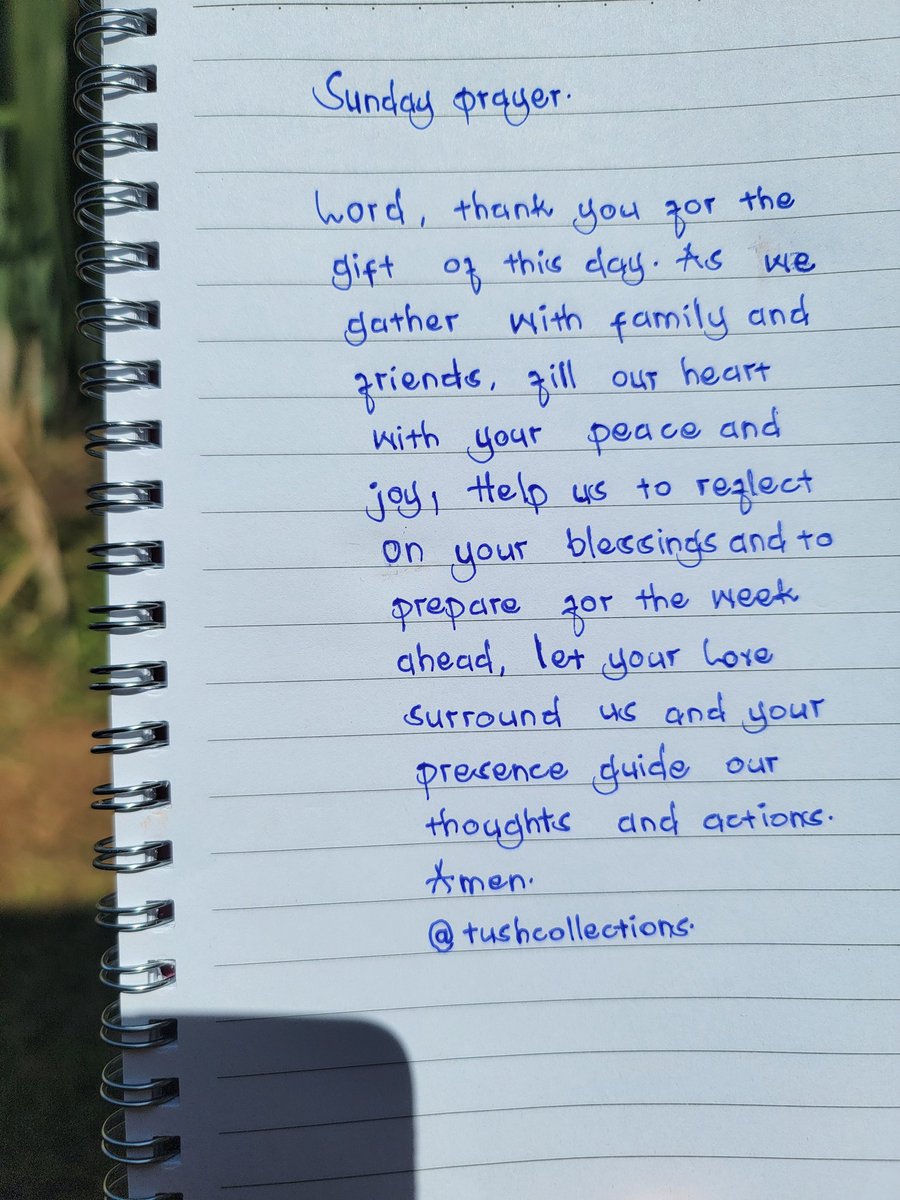 Sunday prayer.
Lord, thank you for the
gift of this day. As we
gather with family and
friends, fill our heart
with your peace and
joy, Help us to reflect
on your blessings and to
prepare for the week
ahead, let your Love
surround us and your
presence guide our
thoughts and actions.
Amen.
@tushcollections.